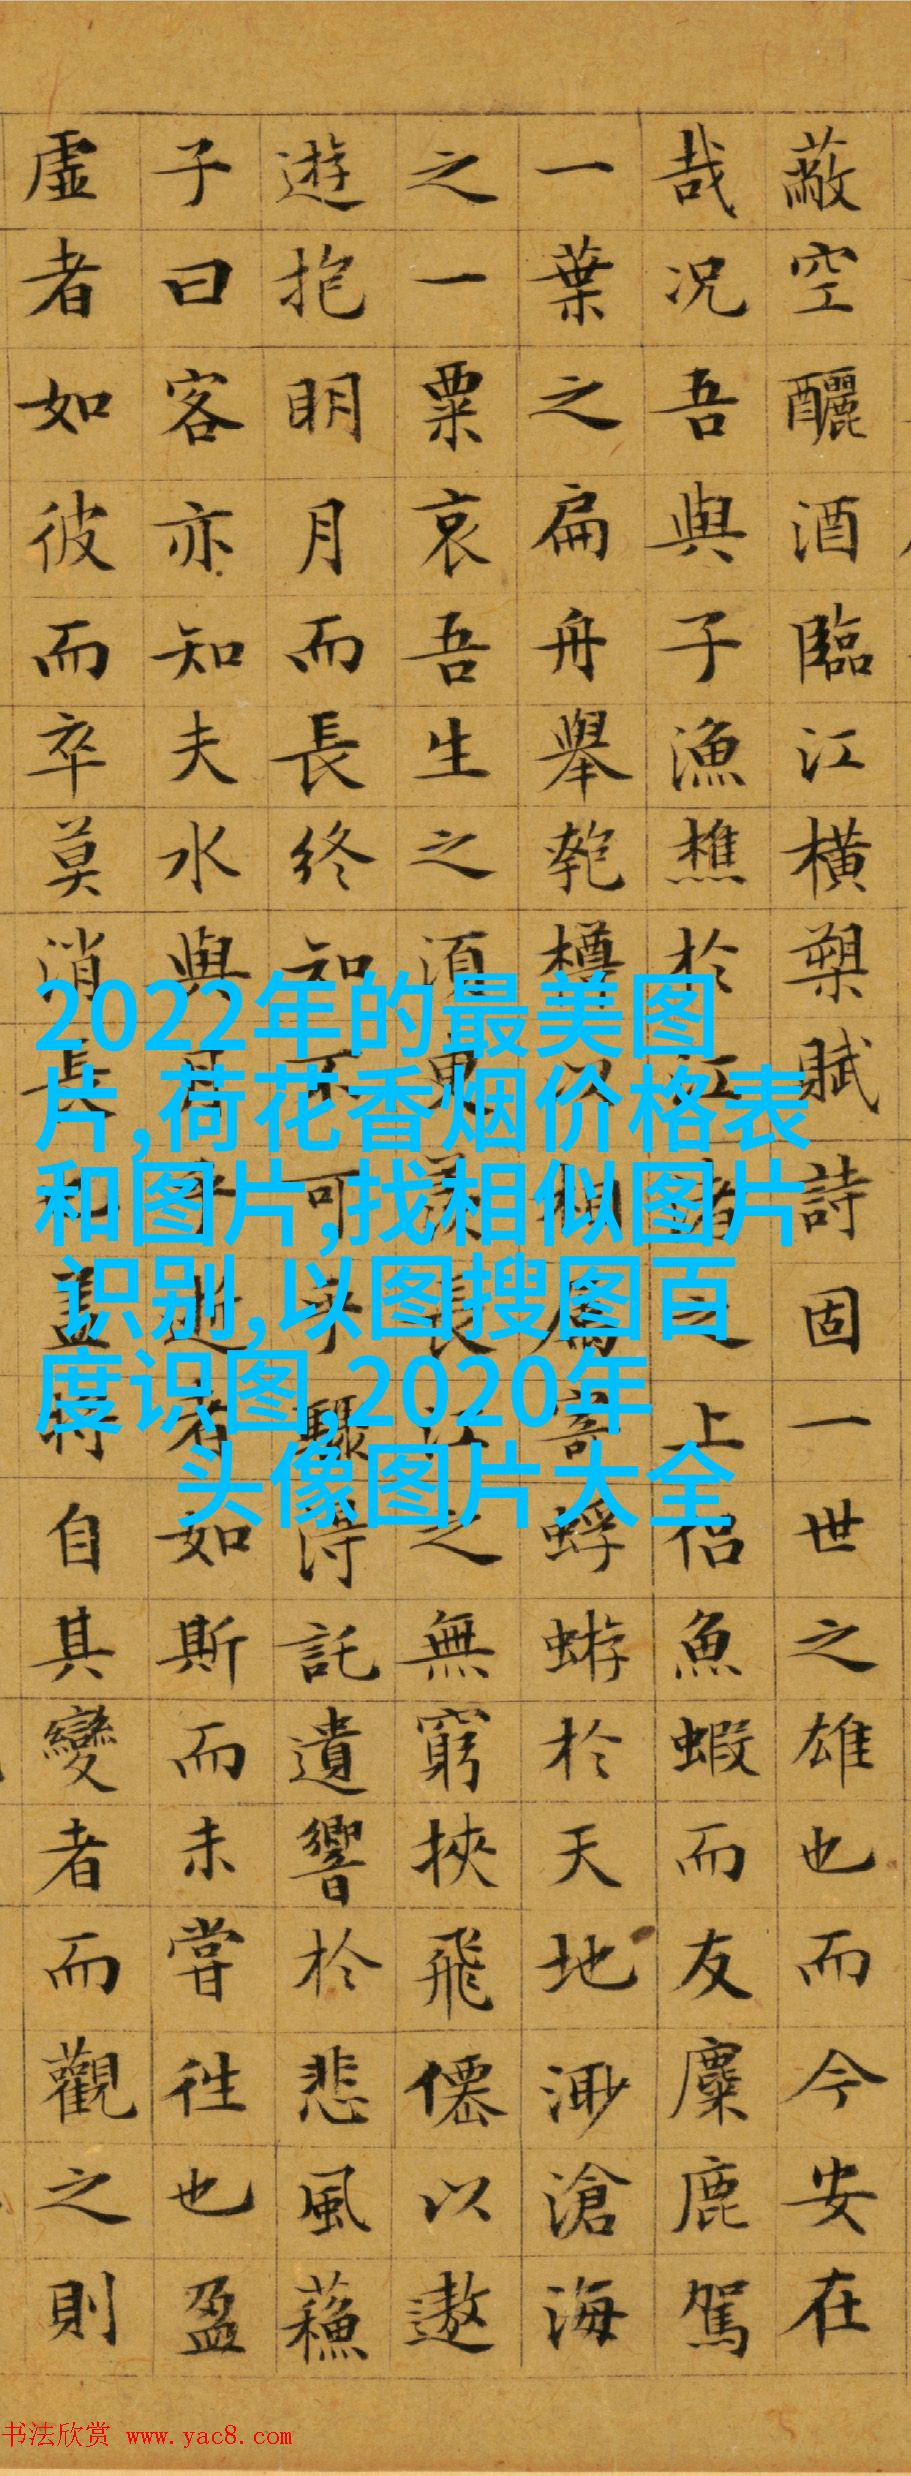 蔽空釃酒臨江橫槊賦詩固一世之雄也而今安在
哉况吾與子漁樵於江渚之上侶魚蝦而友麋鹿駕
一葉之扁舟舉匏樽以相屬寄蜉蝣於天地渺滄海
之一粟哀吾生之須臾羨長江之無窮挾飛僊以遨
遊抱明月而長終知不可乎驟得託遺響於悲風蘓
子曰客亦知夫水與月乎逝者如斯而未嘗往也盈
虛者如彼而卒莫消長也盖將自其變者而觀之則
2022年的最美图
片,荷花香烟价格表
和图片,找相似图片
识别,以图搜图百
度识图,2020年
头像图片大全
书法欣赏 www.yac8.com